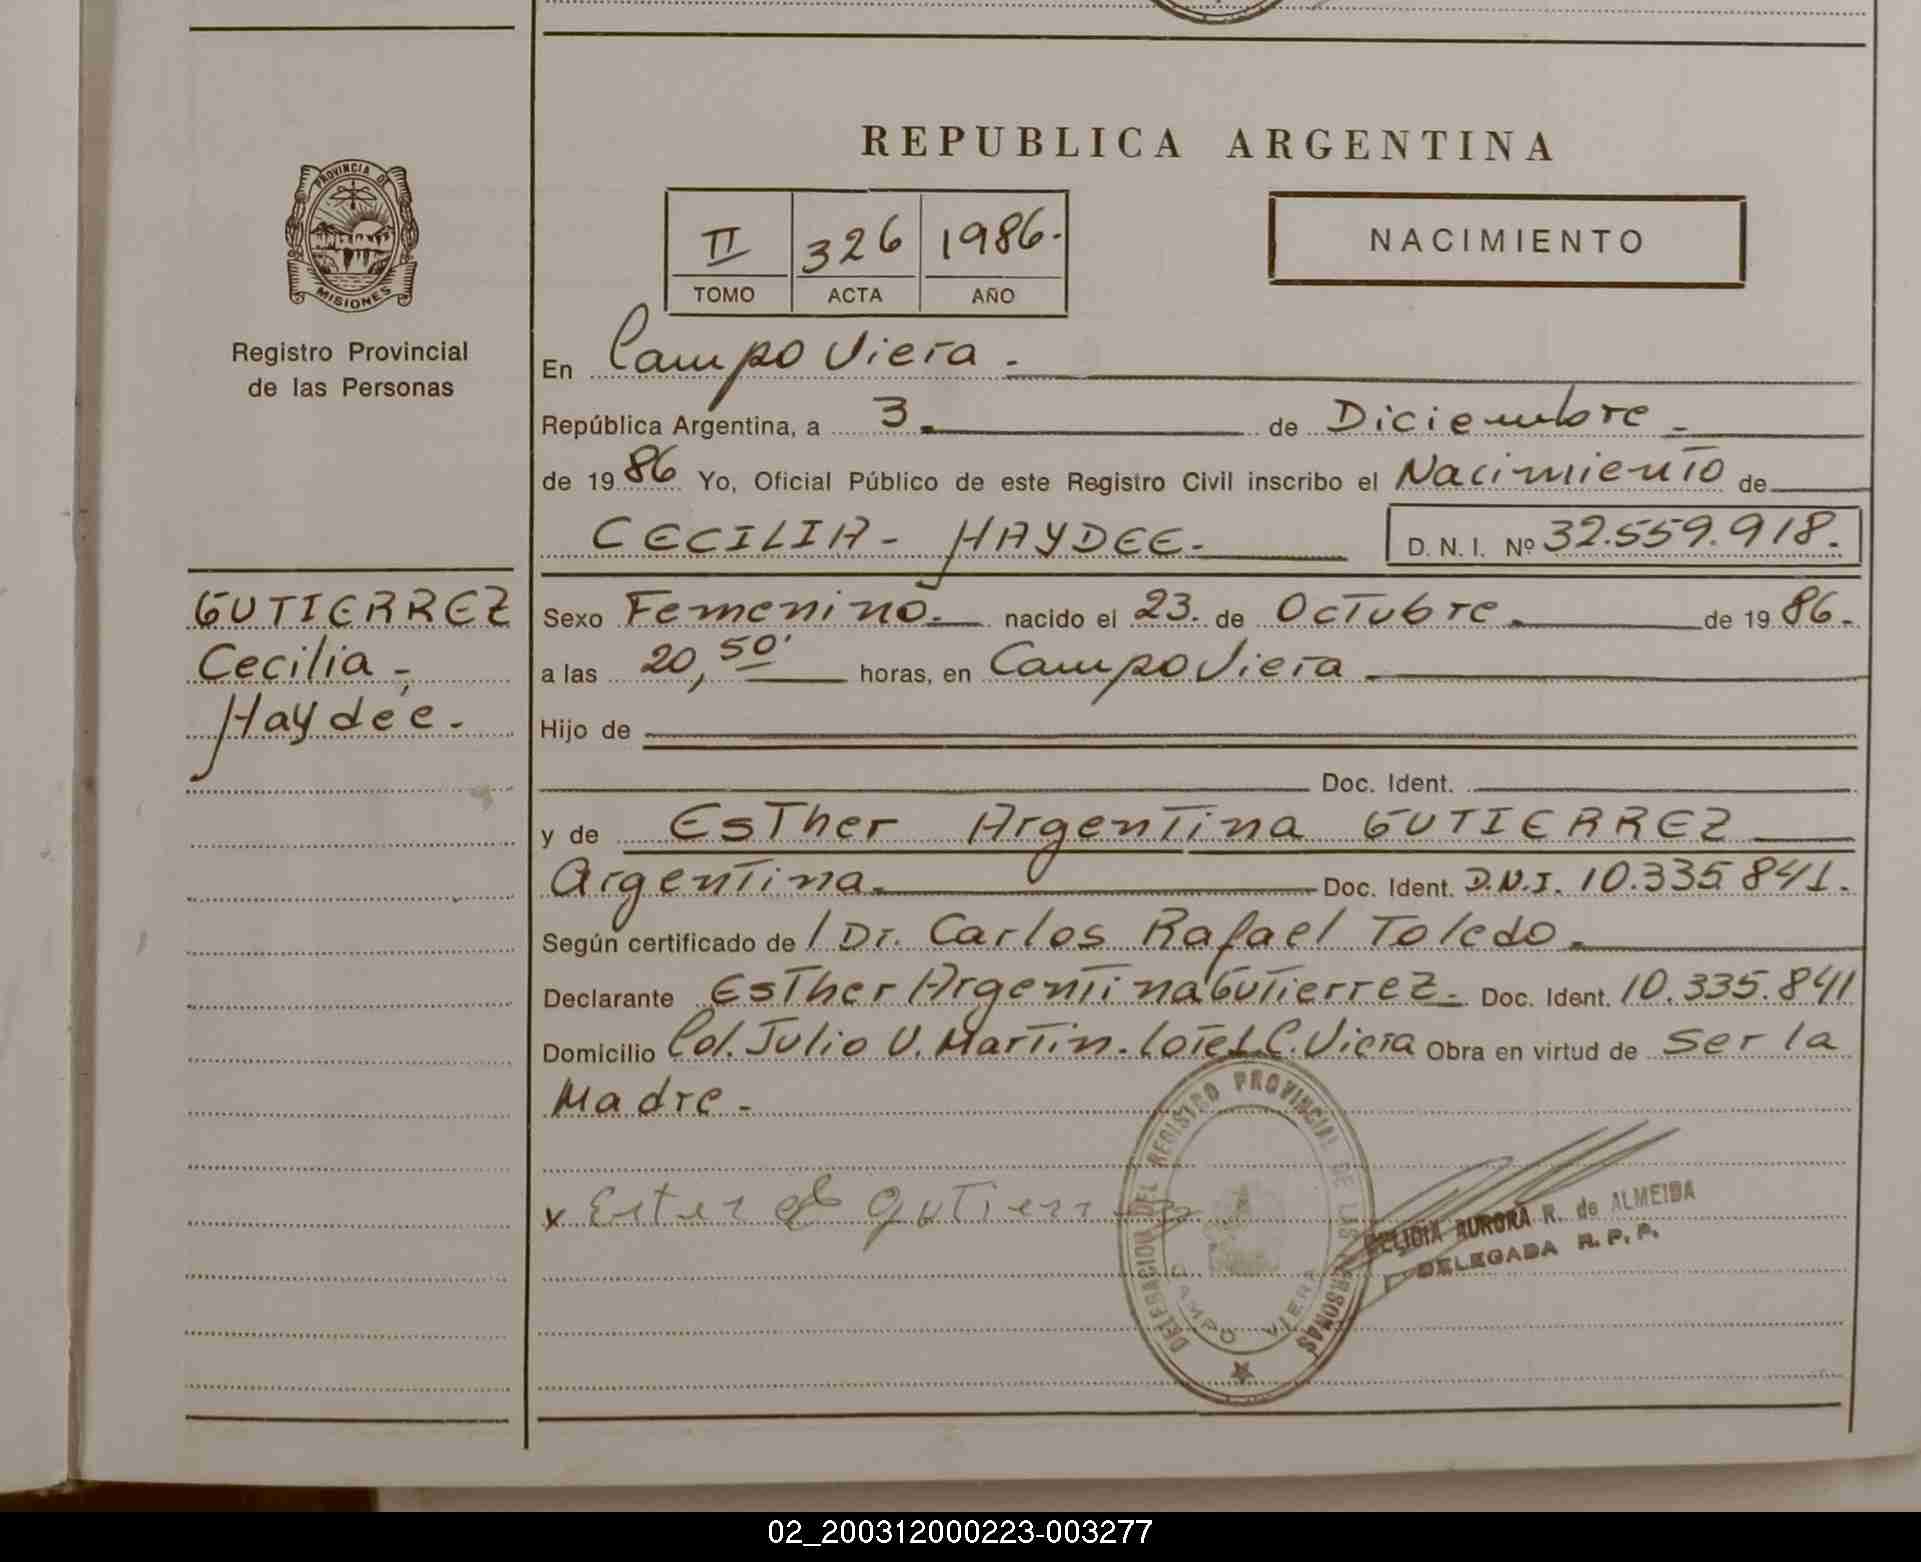 REPUBLICA ARGENTINA
PROVINCIA DE
MISIONES
II 326 1986.
TOMO ACTA AÑO
NACIMIENTO
Registro Provincial
de las Personas
En Campo Viera.
República Argentina, a 3. de Diciembre.
de 1986 Yo, Oficial Público de este Registro Civil inscribo el Nacimiento de
CECILIA - HAYDEE. D. N. I. Nº 32.559.918.
GUTIERREZ
Cecilia -
Haydée.
Sexo Femenino. nacido el 23. de Octubre. de 1986.
a las 20,50' horas, en Campo Viera
Hijo de
Doc. Ident.
y de Esther Argentina GUTIERREZ
Argentina. Doc. Ident. D.N.I. 10.335.841.
Según certificado de / Dr. Carlos Rafael Toledo.
Declarante Esther Argentina Gutierrez. Doc. Ident. 10.335.841
Domicilio Col. Julio U. Martin. C. Viera Obra en virtud de ser la
Madre.
x Ester Gutierrez
DELEGACION DEL REGISTRO PROVINCIAL DE LAS PERSONAS
CAMPO VIERA
AURORA R. de ALMEIDA
DELEGADA R. P. P.
02_200312000223-003277